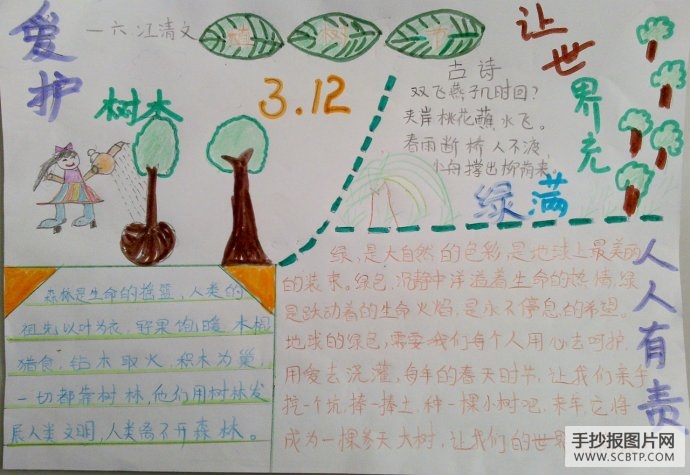 爱护
树木
一六 江清文
植 树 节
3.12
让世界充
绿满
人人有责
古诗
双飞燕子几时回?
夹岸桃花蘸水飞。
春雨断桥人不渡,
小舟撑出柳荫来。
森林是生命的摇篮,人类的
祖先以叶为衣,野果饱暖,木棍
猎食,钻木取火,积木为巢,
一切都靠树林,他们用树林发
展人类文明,人类离不开森林。
绿,是大自然的色彩,是地球上最美丽
的装束。绿色,沉静中洋溢着生命的热情,绿
是跃动着的生命火焰,是永不停息的希望。
地球的绿色,需要我们每个人用心去呵护,
用爱去浇灌,每年的春天时节,让我们亲手
挖一个坑,捧一捧土,种一棵小树吧,来年,它将
成为一棵参天大树,让我们的世界
手抄报图片网
WWW.SCBTP.COM